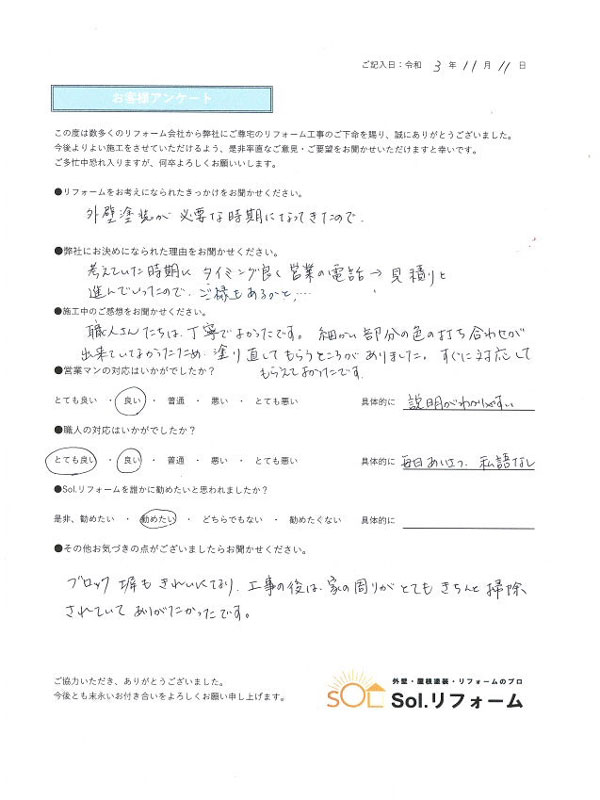 ご記入日：令和 3 年 11 月 11 日
お客様アンケート
この度は数多くのリフォーム会社から弊社にご尊宅のリフォーム工事のご下命を賜り、誠にありがとうございました。
今後よりよい施工をさせていただけるよう、是非率直なご意見・ご要望をお聞かせいただけますと幸いです。
ご多忙中恐れ入りますが、何卒よろしくお願いいします。
●リフォームをお考えになられたきっかけをお聞かせください。
外壁塗装が必要な時期になってきたので.
●弊社にお決めになられた理由をお聞かせください。
考えていた時期に タイミング良く営業の電話→見積りと
進んでいったので. ご縁もあるかと,…
●施工中のご感想をお聞かせください。
職人さんたちは、丁寧でよかったです。細かい部分の色の打ち合わせが
出来ていてなかったため. 塗り直してもらうところがありました。すぐに対応して
もらえてよかったです.
●営業マンの対応はいかがでしたか？
とても良い ・ 良い ・ 普通 ・ 悪い ・ とても悪い 具体的に 説明がわかりやすい
●職人の対応はいかがでしたか？
とても良い ・ 良い ・ 普通 ・ 悪い ・ とても悪い 具体的に 毎日あいさつ. 私語なし
●Sol.リフォームを誰かに勧めたいと思われましたか？
是非、勧めたい ・ 勧めたい ・ どちらでもない ・ 勧めたくない 具体的に
●その他お気づきの点がございましたらお聞かせください。
ブロック塀もきれいになり、工事の後は、家の周りがとてもきちんと掃除
されていてありがたかったです。
ご協力いただき、ありがとうございました。
今後とも末永いお付き合いをよろしくお願い申し上げます。
外壁・屋根塗装・リフォームのプロ
SOL Sol.リフォーム